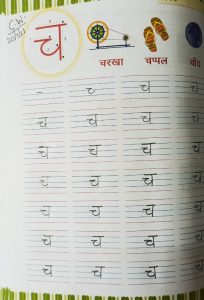 C.W.
च
चरखा चप्पल चाँद
च च
च च च च
च च च च
च च च च
च च च च
च च च च
च च च च